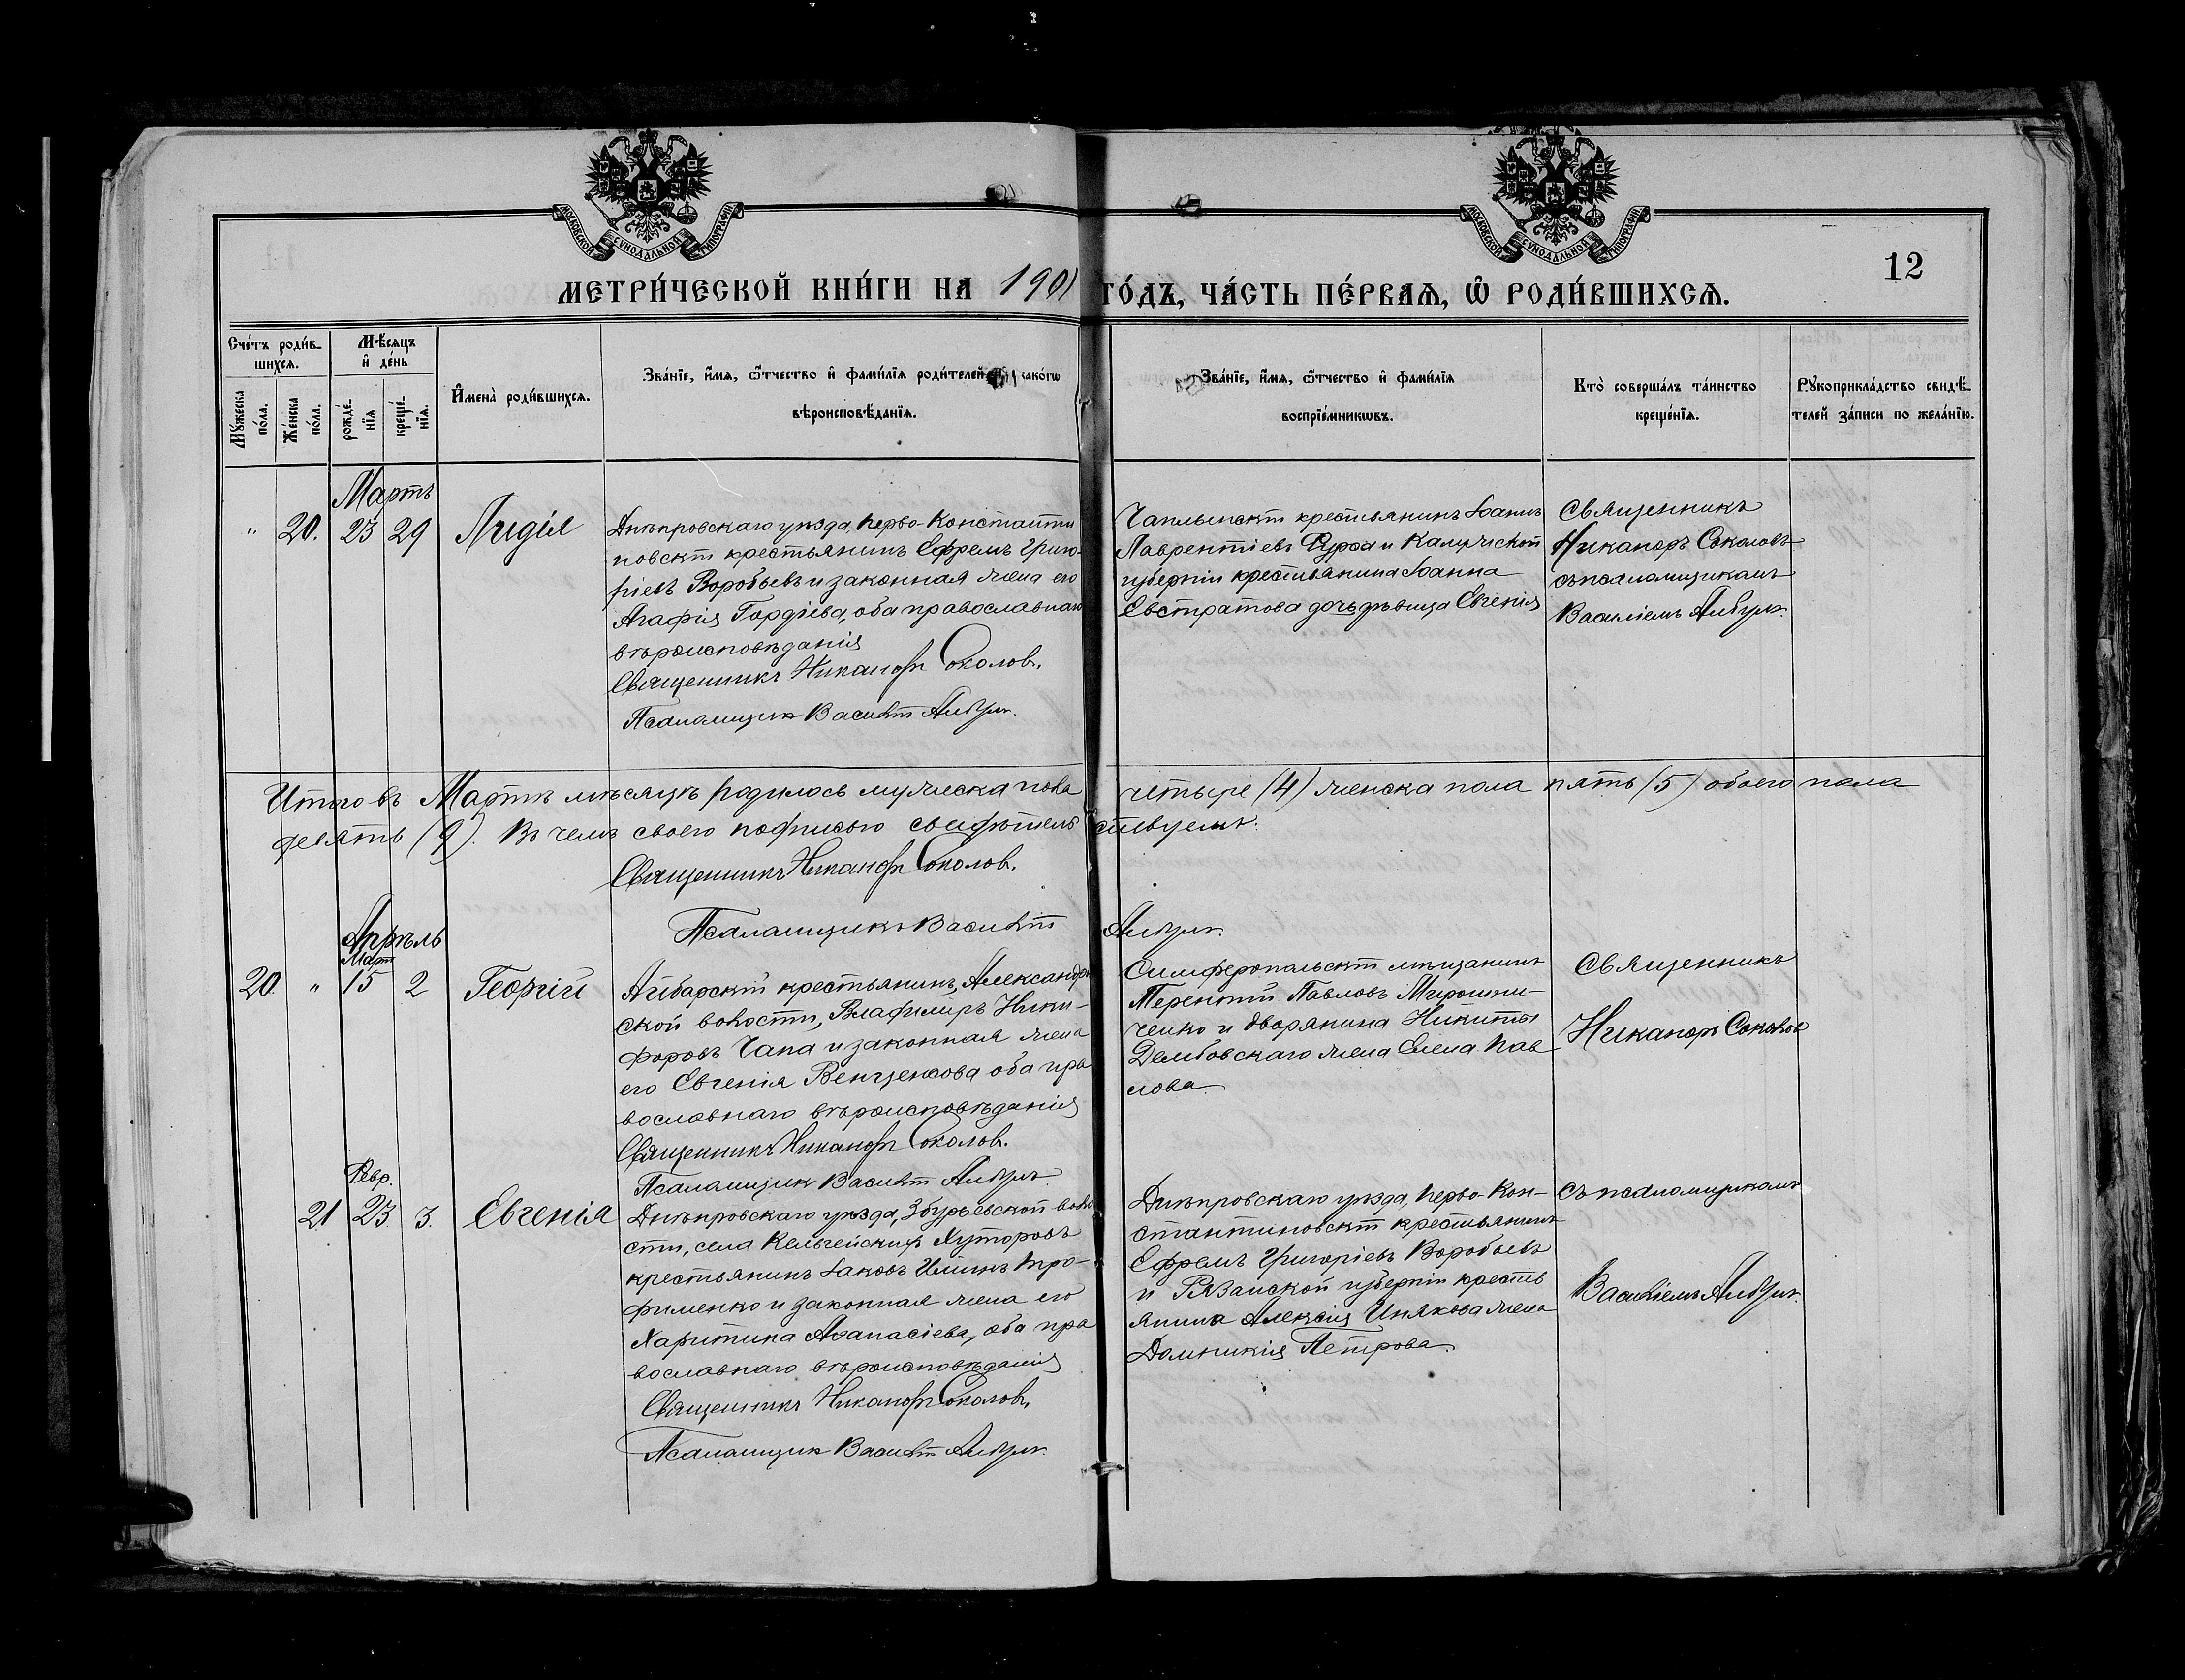 МОСКОВСКОЙ СУНОДАЛЬНОЙ ТИПОГРАФИИ.
МОСКОВСКОЙ СУНОДАЛЬНОЙ ТИПОГРАФИИ.
12
МЕТРИ́ЧЕСКОЙ КНИ́ГИ НА 1901 ГО́ДЪ, ЧА́СТЬ ПЕ́РВАѦ, Ѽ РОДИ́ВШИХСѦ.
Сче́тъ роди́в-
шихсѧ.
Мѣ́сѧцъ
и҆ де́нь
Мꙋ́жеска
по́ла.
Же́нска
по́ла.
рожде́-
нїѧ
креще́-
нїѧ.
И҆мена̀ роди́вшихсѧ.
Зва́нїе, и҆́мѧ, ѻ҆́тчество и҆ фами́лїѧ роди́телей како́гѡ
вѣроисповѣ́данїѧ.
Зва́нїе, и҆́мѧ, ѻ҆́тчество и҆ фами́лїѧ
воспрїе́мникѡвъ.
Кто̀ соверша́лъ та́инство
креще́нїѧ.
Рꙋкоприкла́дство свидѣ́-
телей за́писи по жела́нїю.
Мартъ
" 20. 23 29 Лидія
Днѣпровскаго уѣзда, Перво-Константи
новскій крестьянинъ Ефремъ Григо-
ріевъ Воробьевъ и законная жена его
Агафія Гордіева, оба православнаго
вѣроисповѣданія
Священникъ Никаноръ Соколовъ.
Псаломщикъ Василій
Чаплынскій крестьянинъ Іоаннъ
Лаврентіевъ и Калужской
губерніи крестьянина Іоанна
Евстратова дочь дѣвица Евгенія
Священникъ
Никаноръ Соколовъ
съ псаломщикомъ
Василіемъ
Итого въ Мартѣ мѣсяцѣ родилось мужеска пола четыре (4) женска пола пять (5) обоего пола
девять (9). Въ чемъ своею подписью свидѣтельствуемъ:
Священникъ Никаноръ Соколовъ.
Псаломщикъ Василій
Апрѣль
Март
20. " 15 2 Георгій
Айбарскій крестьянинъ, Александров
ской волости, Владиміръ Ники-
форовъ Чапа и законная жена
его Евгенія оба пра
вославнаго вѣроисповѣданія
Священникъ Никаноръ Соколовъ.
Псаломщикъ Василій
Симферопольскій мѣщанинъ
Терентій Павловъ Мирошни-
ченко и дворянина Никиты
Дембовскаго жена Елена Пав
лова.
Священникъ
Никаноръ Соколовъ
Февр.
21 23 3. Евгенія
Днѣпровскаго уѣзда, Збурьевской воло
сти, села Кельгейскихъ Хуторовъ
крестьянинъ Іаковъ Ильинъ Тро-
фименко и законная жена его
Харитина Афанасіева, оба пра
вославнаго вѣроисповѣданія
Священникъ Никаноръ Соколовъ.
Псаломщикъ Василій
Днѣпровскаго уѣзда, Перво-Кон-
стантиновскій крестьянинъ
Ефремъ Григоріевъ Воробьевъ
и Рязанской губерніи кресть
янина Алексія Инякова жена
Домникія Петрова.
съ псаломщикомъ
Василіемъ